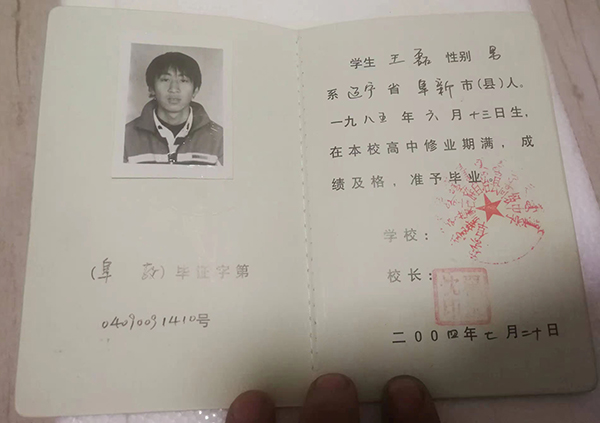 (阜新)毕证字第
0409091410号
学生 王磊 性别 男
系辽宁省阜新市(县)人。
一九八五年六月十三日生,
在本校高中修业期满,成
绩及格,准予毕业
学校:
校长:
二000四年七月二十日